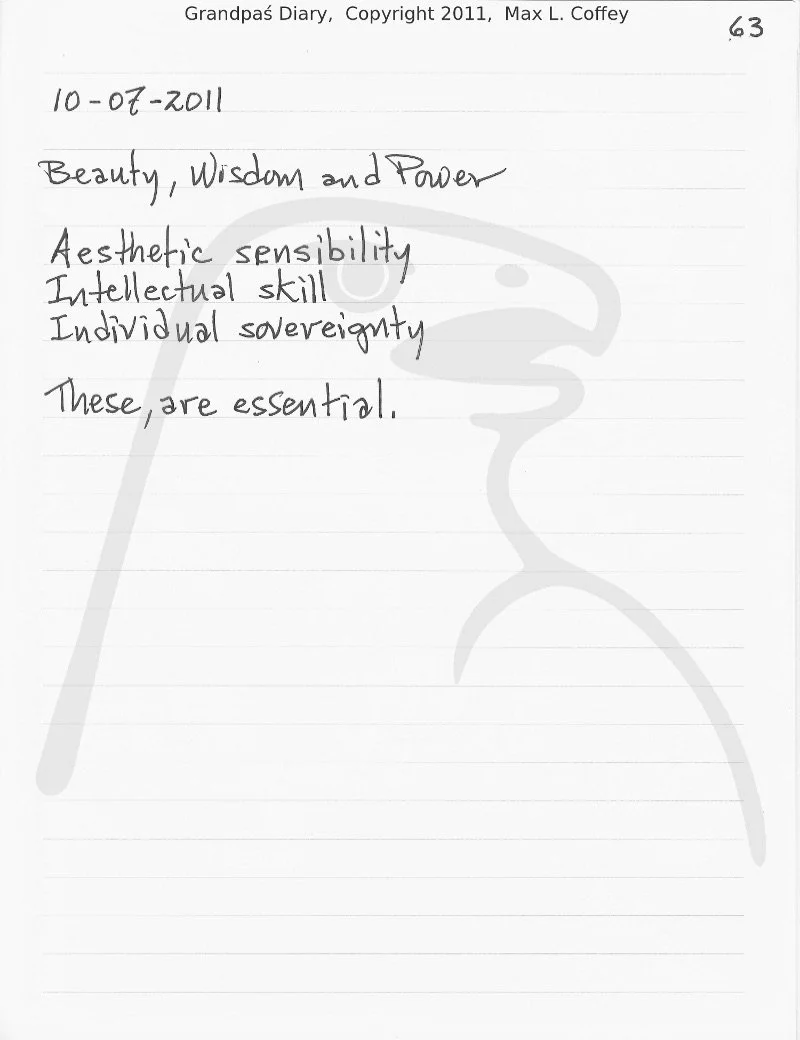 Grandpaś Diary, Copyright 2011, Max L. Coffey
63
10-07-2011
Beauty, Wisdom and Power
Aesthetic sensibility
Intellectual skill
Individual sovereignty
These, are essential.